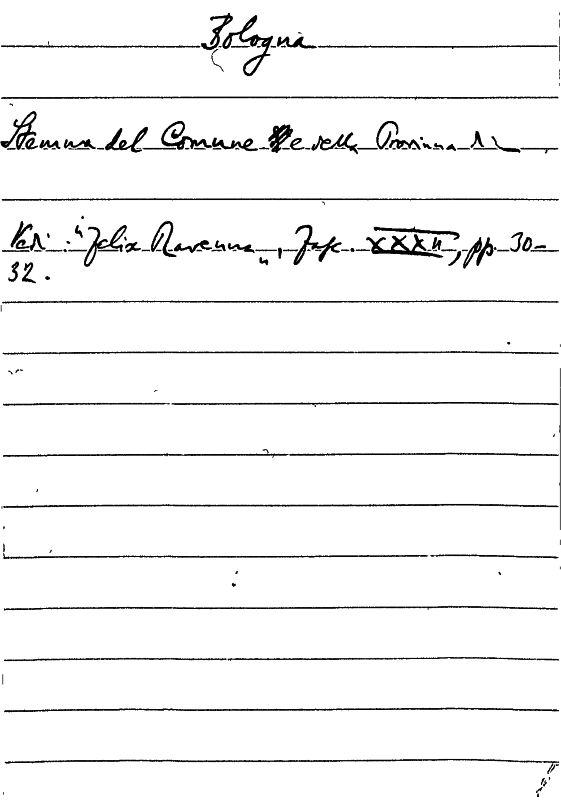 Bologna
Stemma del Comune e della Provincia di
Vedi: "Felix Ravenna", Fasc. XXXII, pp. 30-
32.